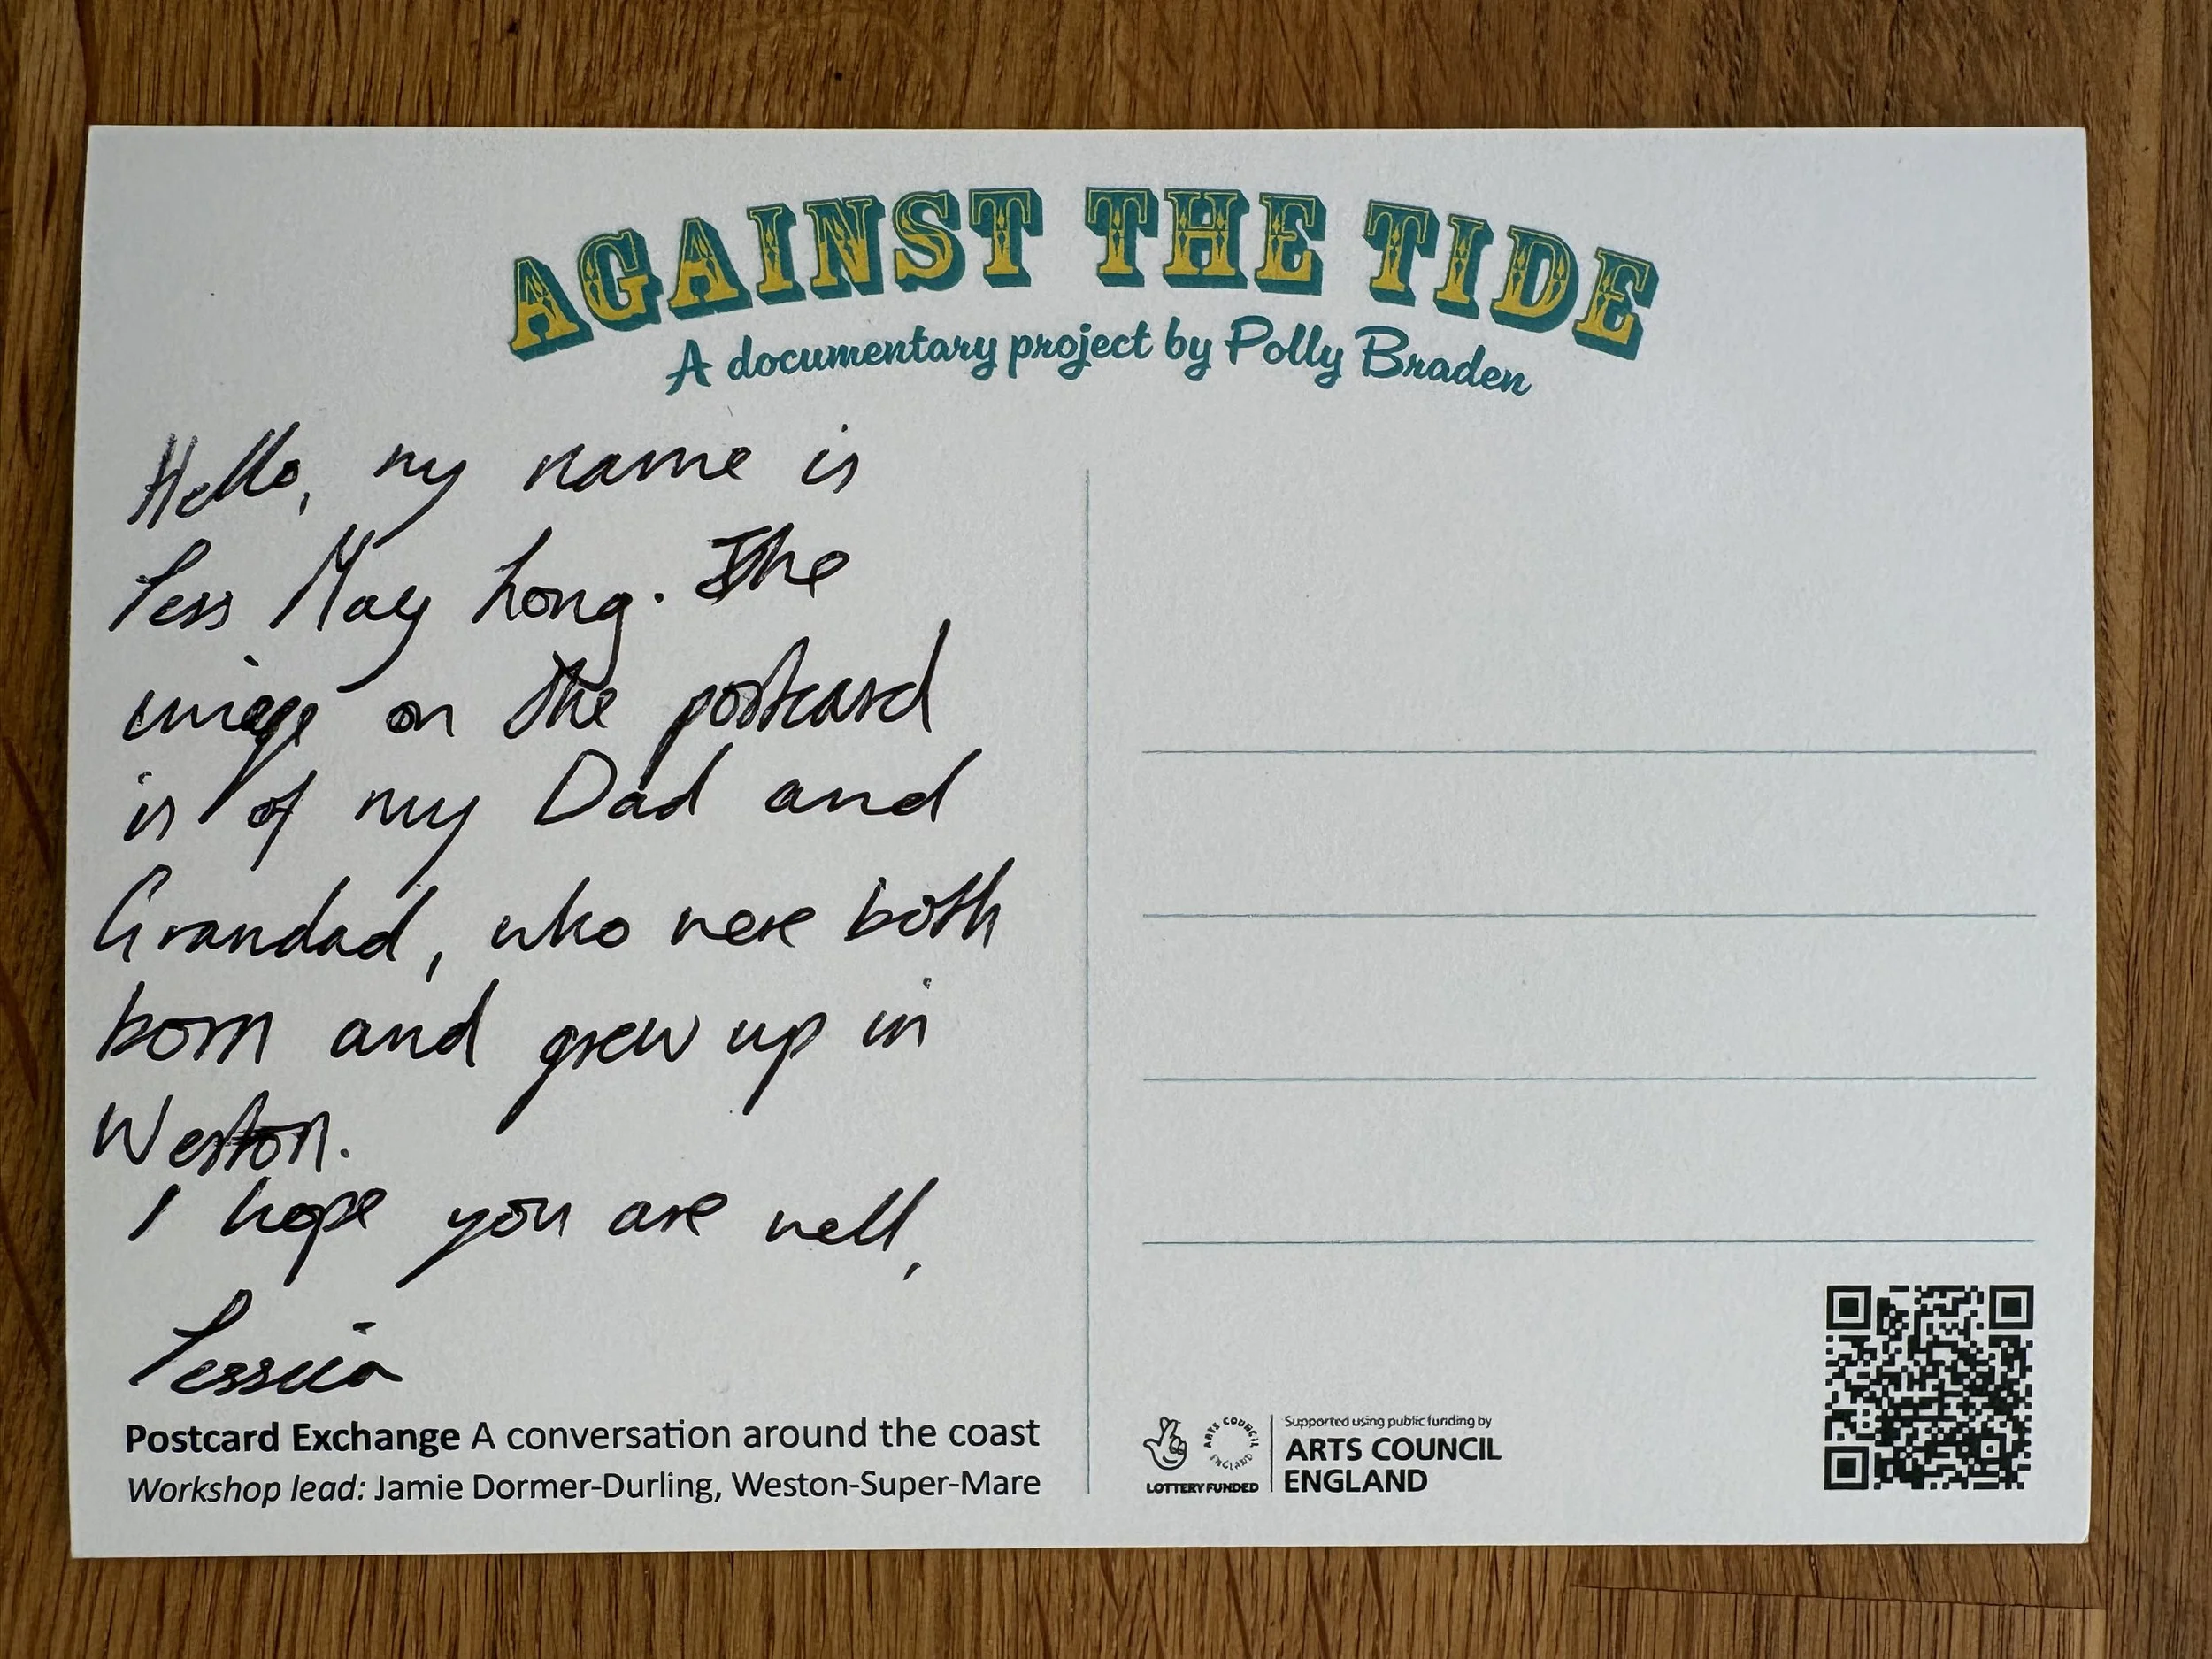 AGAINST THE TIDE
A documentary project by Polly Braden
Hello, my name is
Jess May Long. The
image on the postcard
is of my Dad and
Grandad, who were both
born and grew up in
Weston.
I hope you are well,
Jessica
Postcard Exchange A conversation around the coast
Workshop lead: Jamie Dormer-Durling, Weston-Super-Mare
LOTTERY FUNDED
ARTS COUNCIL ENGLAND
Supported using public funding by
ARTS COUNCIL
ENGLAND